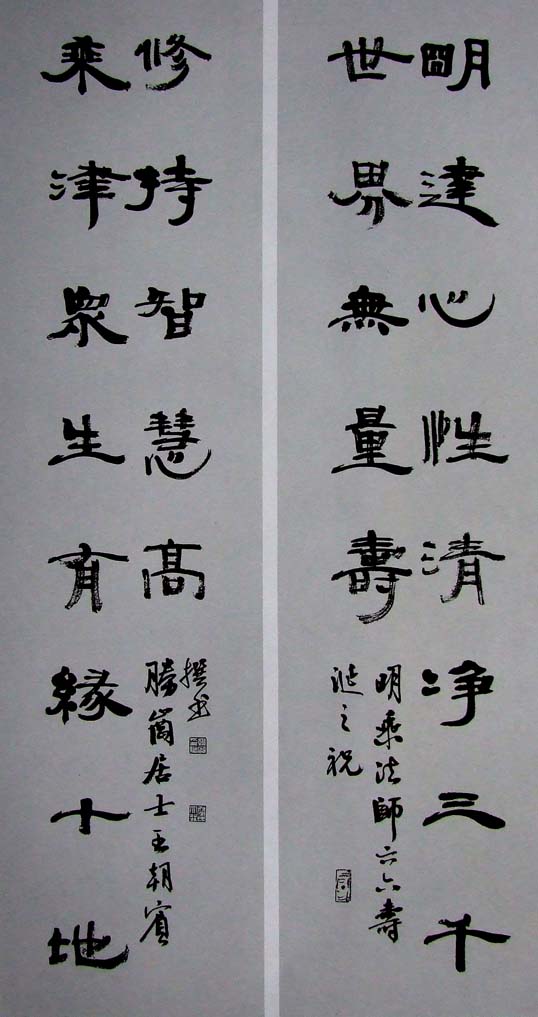 明達心性清净三千
世界無量壽
明乘法師六六壽
誕之祝
乘津眾生有緣十地
修持智慧高
居士王朝賓
撰书